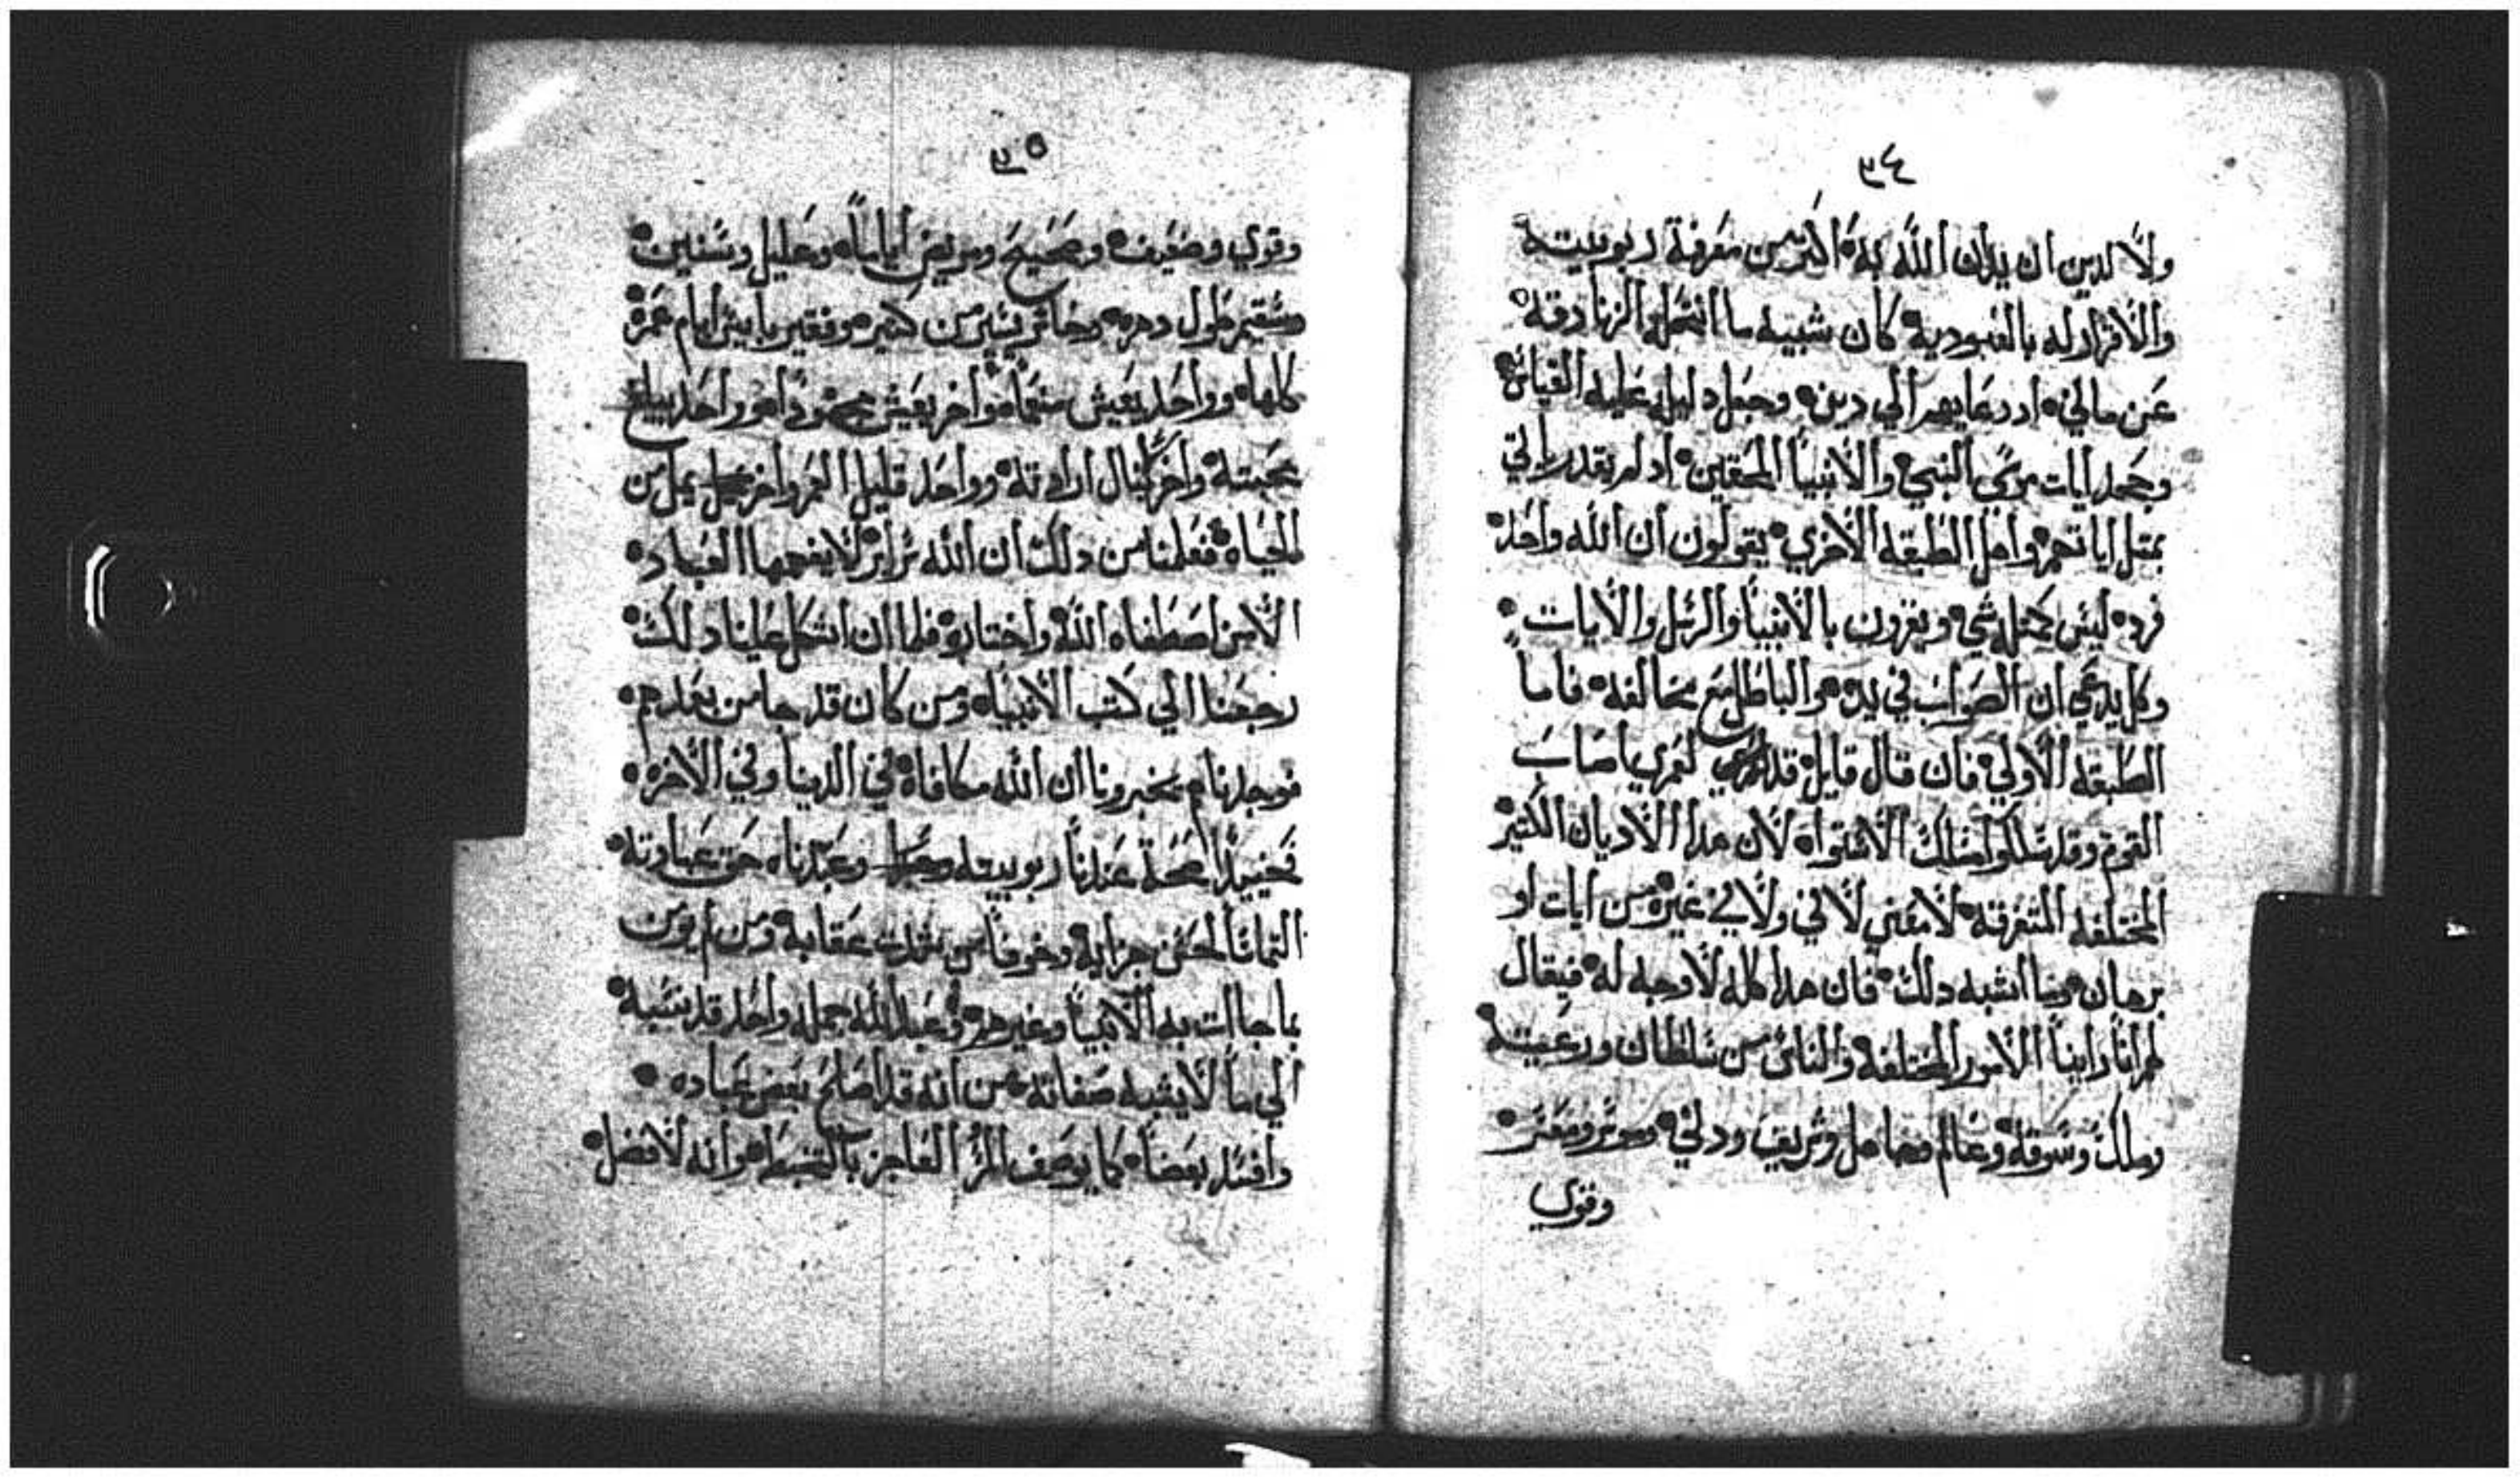 ولا لدين ان يدان الله به اكثر من معرفة ربوبيته
والاقرار له بالعبودية كان شبيه ما انتحلوا الزنادقه
عن ماني اد دعايهم الي دينه وجعل دليله عليه القياس
وجحد ايات موسي النبي والانبيا المحقين اد لم يقدر ياتي
بمتل اياتهم واهل الطبقه الاخري يقولون ان الله واحد
فرد ليس كمتله شي ويقرون بالانبيا والرسل والايات
وكل يدعي ان الصواب في يده والباطل مع مخالفه فاما
الطبقه الاولي فان قال قايل قد لعمري اصاب
القوم وقد سلكوا مسلك الاستواء لان هدا الاديان الكتير
المختلفه المتفرقه لا معني لا في ولا في غيره من ايات او
برهان وما اشبه دلك فان هدا كله لا وجه له فيقال
لهم انا راينا الامور المختلفه والناس من سلطان ورعيته
وملك وسوقه وعالم وجاهل وشريف ودني وموسر ومعسر
وقوي
وقوي وضعيف وصحيح ومريض اياما وحليل وسنين
سقيم طول دهره وخاسر يسير من كتير وفقير بايس ايام عمره
كلها وواحد يعيش منعما واخر يعيش مجهودا وواحد يبلغ
محبته واخر لا ينال ارادته وواحد قليل العمر واخر يمل من
الحياه فعلمنا من دلك ان الله سراير لا يفهمها العباد
الا من اصطفاه الله واختاره فلما ان اشكل علينا دلك
رجعنا الي كتب الانبياء ومن كان قد جا من بعدهم
فوجدناهم يخبرونا ان الله مكافاه في الدنيا وفي الاخره
فحينيدا صحة عندنا ربوبيته وعبدناه حق عبادته
التماسا لحسن جزايه وخوفا من شدت عقابه ومن لم يومن
بما جاات به الانبيا وغيرهم وعبد الله جمله واحد قد شبه
الي ما لا يشبه صفاته من انه قد اصلح بعض عباده
وافسد بعضا كما يوصف المرء العاجز بالتضبط وانه لا فضل